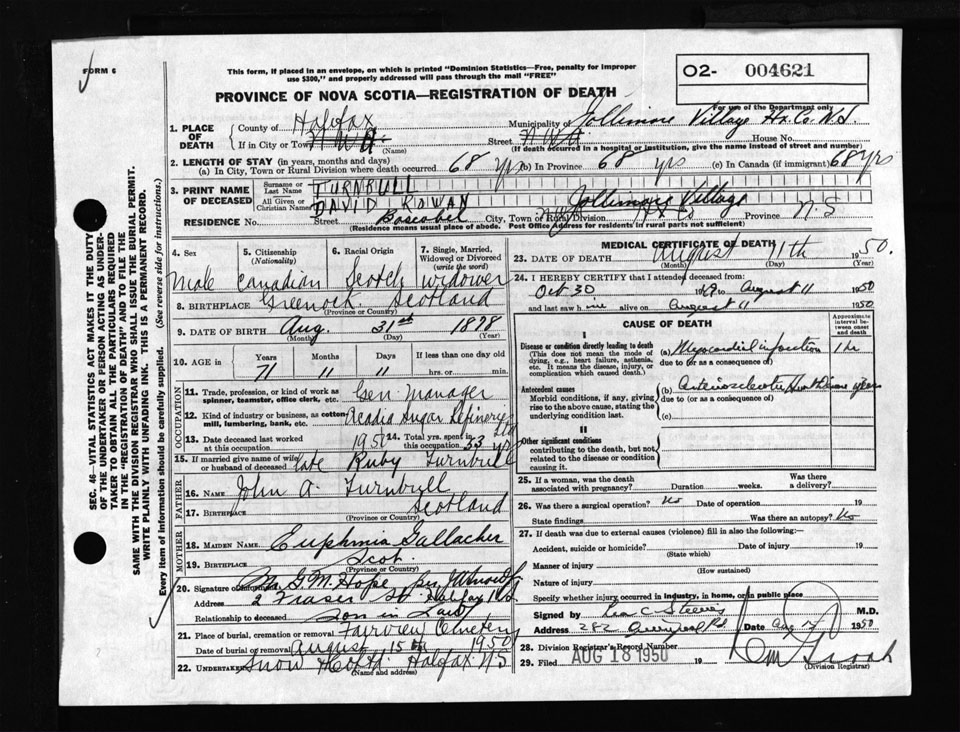 FORM 6
This form, if placed in an envelope, on which is printed "Dominion Statistics—Free, penalty for improper
use $300," and properly addressed will pass through the mail "FREE"
O2- 004621
PROVINCE OF NOVA SCOTIA—REGISTRATION OF DEATH
For use of the Department only
1. PLACE OF DEATH
County of Halifax Municipality of Jollimore Village Hx. Co. N.S.
If in City or Town (Name) Street House No.
(If death occurred in a hospital or institution, give the name instead of street and number)
2. LENGTH OF STAY (in years, months and days)
(a) In City, Town or Rural Division where death occurred 68 yrs (b) In Province 68 yrs (c) In Canada (if immigrant) 68 yrs
3. PRINT NAME OF DECEASED
Surname or Last Name TURNBULL
All Given or Christian Names DAVID ROWAN
RESIDENCE No. Street Boscobel City, Town or Rural Division Jollimore Village Hx Co Province N.S
(Residence means usual place of abode. Post Office Address for residents in rural parts not sufficient)
4. Sex
5. Citizenship (Nationality)
6. Racial Origin
7. Single, Married, Widowed or Divorced (write the word)
Male Canadian Scotch Widower
8. BIRTHPLACE Greenock Scotland
(Province or Country)
9. DATE OF BIRTH Aug. 31st 1878
(Month) (Day) (Year)
10. AGE in Years Months Days If less than one day old
71 11 11 hrs. or min.
OCCUPATION
11. Trade, profession, or kind of work as spinner, teamster, office clerk, etc. Gen. Manager
12. Kind of industry or business, as cotton-mill, lumbering, bank, etc. Acadia Sugar Refinery Ltd
13. Date deceased last worked at this occupation 1950
14. Total yrs. spent in this occupation 53 yrs
15. If married give name of wife or husband of deceased late Ruby Turnbull
FATHER
16. NAME John A. Turnbull
17. BIRTHPLACE Scotland
(Province or Country)
MOTHER
18. MAIDEN NAME Euphmia Gallacher
19. BIRTHPLACE Scot.
(Province or Country)
20. Signature of Informant G. M. Hope
Address 2 Fraser St. Halifax N.S.
Relationship to deceased Son in Law
21. Place of burial, cremation or removal Fairview Cemetery
Date of burial or removal August 15th 1950
22. Undertaker Snow Halifax NS
(Name and address)
MEDICAL CERTIFICATE OF DEATH
23. DATE OF DEATH August 11th 1950.
(Month) (Day) (Year)
24. I HEREBY CERTIFY that I attended deceased from
Oct 30 1949 to August 11 1950
and last saw him alive on August 11 1950
CAUSE OF DEATH
Approximate interval between onset and death
I
Disease or condition directly leading to death
(This does not mean the mode of dying, e.g., heart failure, asthenia, etc. It means the disease, injury, or complication which caused death.)
(a) Myocardial infarction 1 hr
due to (or as a consequence of)
Antecedent causes
Morbid conditions, if any, giving rise to the above cause, stating the underlying condition last.
(b) Arteriosclerotic Heart Disease years
due to (or as a consequence of)
(c)
II
Other significant conditions
contributing to the death, but not related to the disease or condition causing it.
25. If a woman, was the death associated with pregnancy? Duration weeks. Was there a delivery?
26. Was there a surgical operation? No Date of operation 19
State findings Was there an autopsy? No
27. If death was due to external causes (violence) fill in also the following:
Accident, suicide or homicide? Date of injury 19
(State which)
Manner of injury
(How sustained)
Nature of injury
Specify whether injury occurred in industry, in home, or in public place
Signed by C Steeves M.D.
Address 282 Date Aug 1950
28. Division Registrar's Record Number
29. Filed AUG 18 1950 19
(Division Registrar)
SEC. 46—VITAL STATISTICS ACT MAKES IT THE DUTY
OF THE UNDERTAKER OR PERSON ACTING AS UNDERTAKER
TO OBTAIN ALL THE PARTICULARS REQUIRED
IN THE "REGISTRATION OF DEATH" AND TO FILE THE
SAME WITH THE DIVISION REGISTRAR WHO SHALL ISSUE THE BURIAL PERMIT.
WRITE PLAINLY WITH UNFADING INK. THIS IS A PERMANENT RECORD.
Every item of information should be carefully supplied. (See reverse side for instructions.)